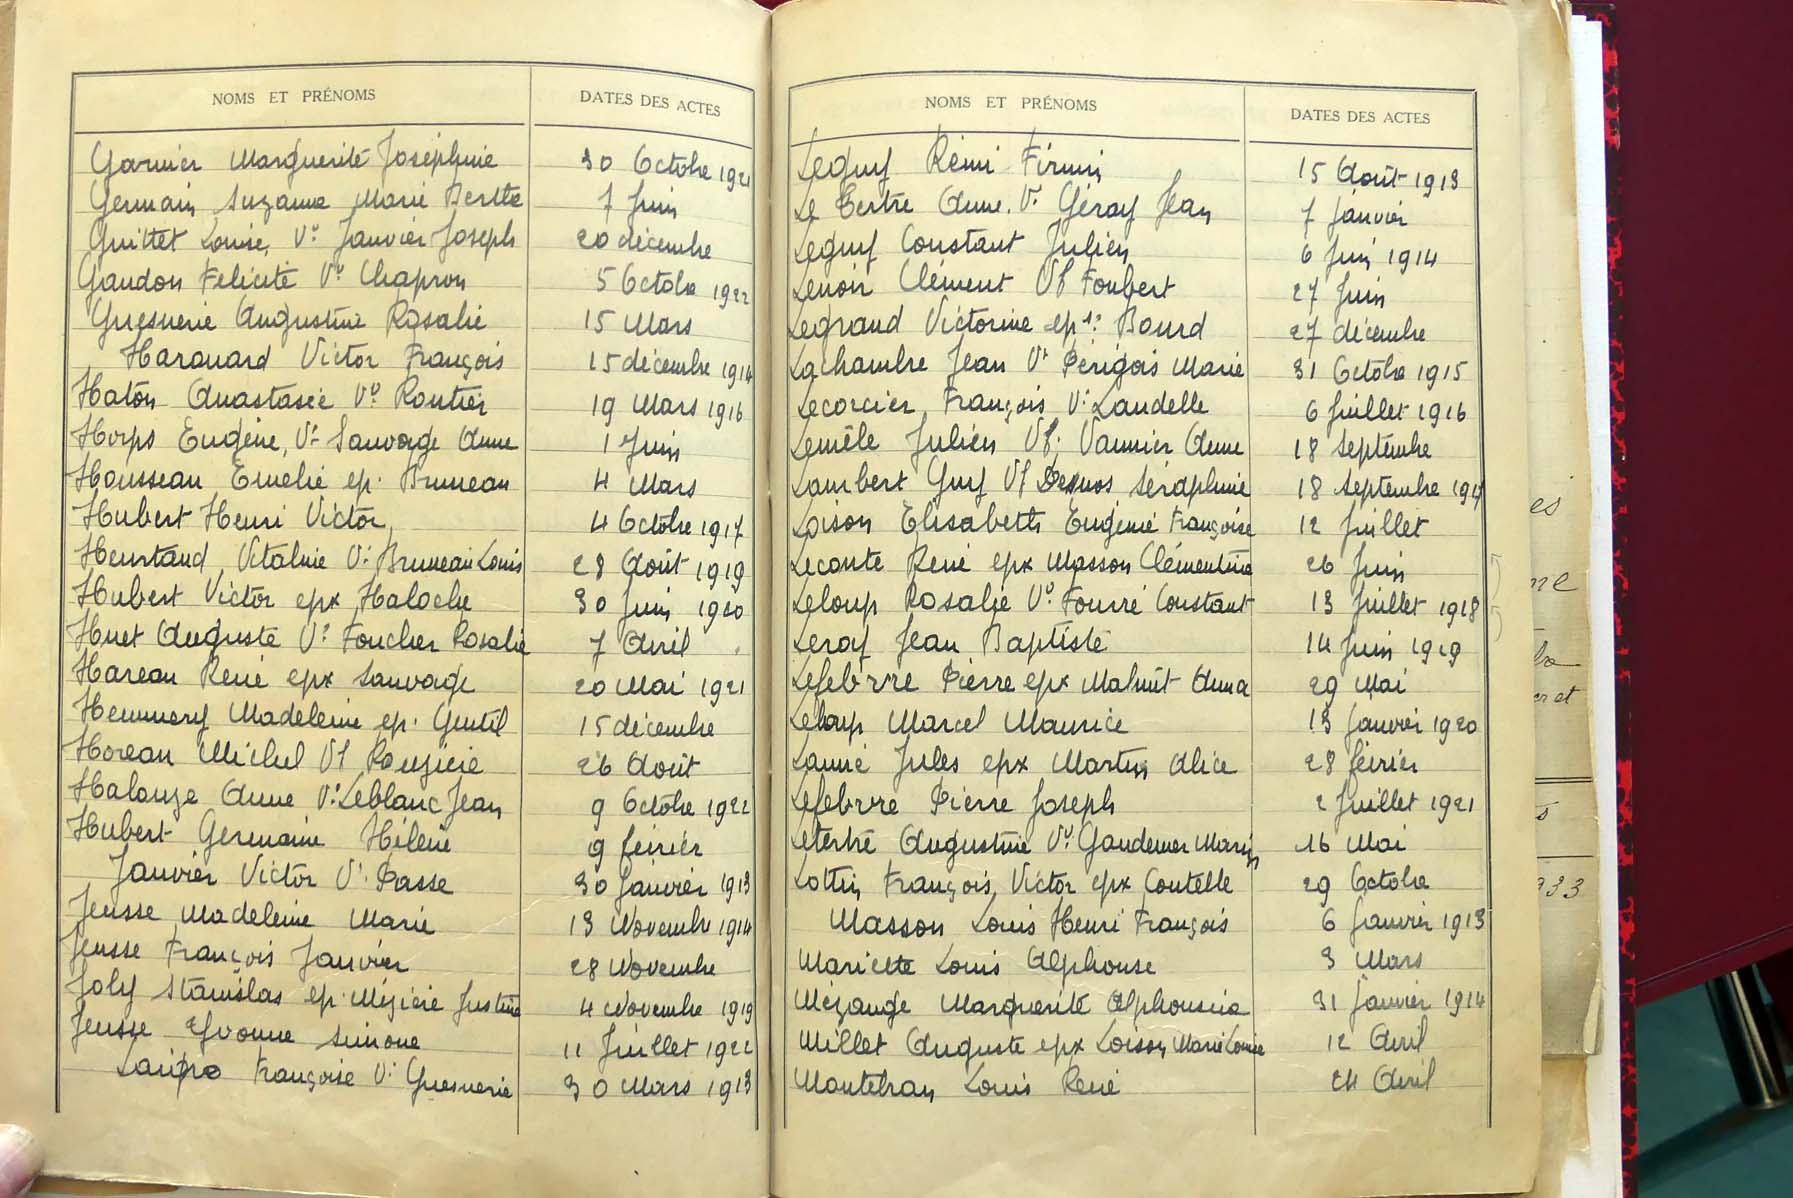 NOMS ET PRÉNOMS DATES DES ACTES
Garnier Marguerite Joséphine 30 Octobre 1921
Germain Suzanne Marie Berthe 7 Juin
Guittet Louise, Vve Janvier Joseph 20 décembre
Gaudon Félicité Vve Chapron 5 Octobre 1922
Guesnerie Augustine Rosalie 15 Mars
Harouard Victor François 15 décembre 1914
Haton Anastasie Vve Routier 19 Mars 1916
Horps Eugène, Vf Sauvage Anne 1 Juin
Housseau Emélie ep. Bruneau 4 Mars
Hubert Henri Victor, 4 Octobre 1917
Heurtaud Vitaline Ve Bruneau Louis 28 Août 1919
Hubert Victor epx Haloche 30 Juin 1920
Huet Auguste Vf Foucher Rosalie 7 Avril
Hareau René epx Sauvage 20 Mai 1921
Hemmery Madeleine ep. Gentil 15 décembre
Horeau Michel Vf 26 Août
Halouze Anne Ve Leblanc Jean 9 Octobre 1922
Hubert Germaine Hélène 9 février
Janvier Victor Vf Passe 30 Janvier 1913
Jeusse Madeleine Marie 13 Novembre 1914
Jeusse François Janvier 28 Novembre
Joly Stanislas ep. Mézière Justine 4 Novembre 1919
Jeusse Yvonne Simone 11 Juillet 1922
Françoise Ve Guesnerie 30 Mars 1913
NOMS ET PRÉNOMS DATES DES ACTES
Leguy Rémi Firmin 15 Août 1913
Le Tertre Anne. Ve Géray Jean 7 Janvier
Leguy Constant Julien 6 Juin 1914
Lenoir Clément Vf Foubert 27 Juin
Legrand Victorine epse Bourd 27 décembre
Lachambre Jean Vf Périgois Marie 31 Octobre 1915
Lecorcier François Vf Landelle 6 Juillet 1916
Lemêle Julien Vf. Vannier Anne 18 Septembre
Lambert Guy Vf Desnos Séraphine 18 Septembre 1917
Loison Elisabeth Eugénie Françoise 12 Juillet
Leconte René epx Masson Clémentine 26 Juin
Leloup Rosalie Vve Fourré Constant 13 Juillet 1918
Leroy Jean Baptiste 14 Juin 1919
Lefebvre Pierre epx Mahuit Anna 29 Mai
Leloup Marcel Maurice 13 Janvier 1920
Launé Jules epx Martin Alice 28 février
Lefebvre Pierre Joseph 2 Juillet 1921
Letertre Augustine Vve Gaudemer Marin 16 Mai
Lottin François, Victor epx Coutelle 29 Octobre
Masson Louis Henri François 6 Janvier 1913
Mariette Louis Alphonse 3 Mars
Mézange Marguerite Alphonsine 31 Janvier 1914
Millet Auguste epx Loison Marie Louise 12 Avril
Montebran Louis René 24 Avril